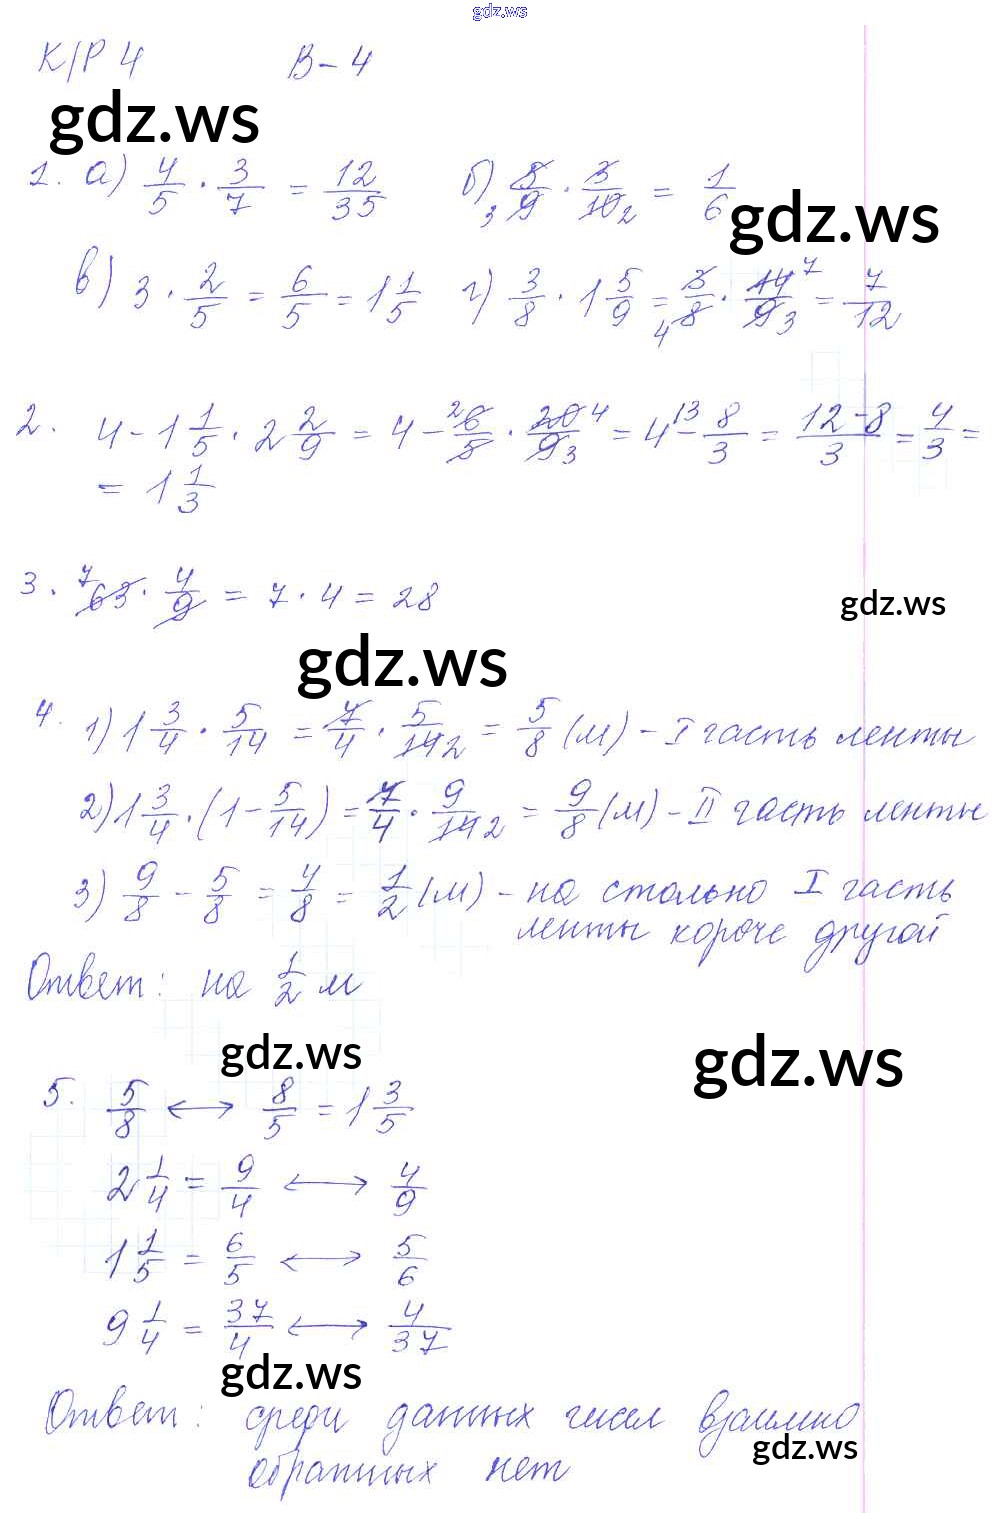 gdz.ws
К/Р 4 В-4
gdz.ws
1. а) 4/5 · 3/7 = 12/35 б) 5/9 · 3/10 = 1/6
3 2
gdz.ws
в) 3 · 2/5 = 6/5 = 1 1/5 г) 3/8 · 1 5/9 = 3/8 · 14/9 = 7/12
4 7 3
2. 4 - 1 1/5 · 2 2/9 = 4 - 6/5 · 20/9 = 4 - 8/3 = (12-8)/3 = 4/3 =
2 4 3 3
= 1 1/3
3. 63 · 4/9 = 7 · 4 = 28
7
gdz.ws
gdz.ws
4. 1) 1 3/4 · 5/14 = 7/4 · 5/14 = 5/8 (м) - I часть ленты
2
2) 1 3/4 · (1 - 5/14) = 7/4 · 9/14 = 9/8 (м) - II часть ленты
2
3) 9/8 - 5/8 = 4/8 = 1/2 (м) - на столько I часть
ленты короче другой
Ответ: на 1/2 м
gdz.ws
gdz.ws
5. 5/8 ⟷ 8/5 = 1 3/5
2 1/4 = 9/4 ⟷ 4/9
1 1/5 = 6/5 ⟷ 5/6
9 1/4 = 37/4 ⟷ 4/37
gdz.ws
Ответ: среди данных чисел взаимно
gdz.ws
обратных нет